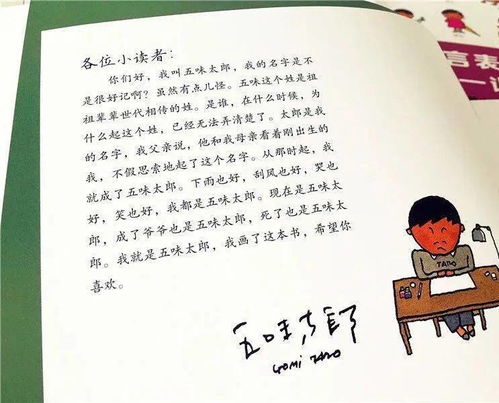 各位小读者：
你们好，我叫五味太郎，我的名字是不
是很好记啊？虽然有点儿怪。五味这个姓是祖
祖辈辈世代相传的姓。是谁，在什么时候，为
什么起这个姓，已经无法弄清楚了。太郎是我
的名字，我父亲说，他和我母亲看着刚出生的
我，不假思索地起了这个名字。从那时起，我
就成了五味太郎。下雨也好，刮风也好，哭也
好，笑也好，我都是五味太郎。现在是五味太
郎，成了爷爷也是五味太郎，死了也是五味太
郎。我就是五味太郎，我画了这本书，希望你
喜欢。
五味太郎
GOMI TARO
TARO
言表